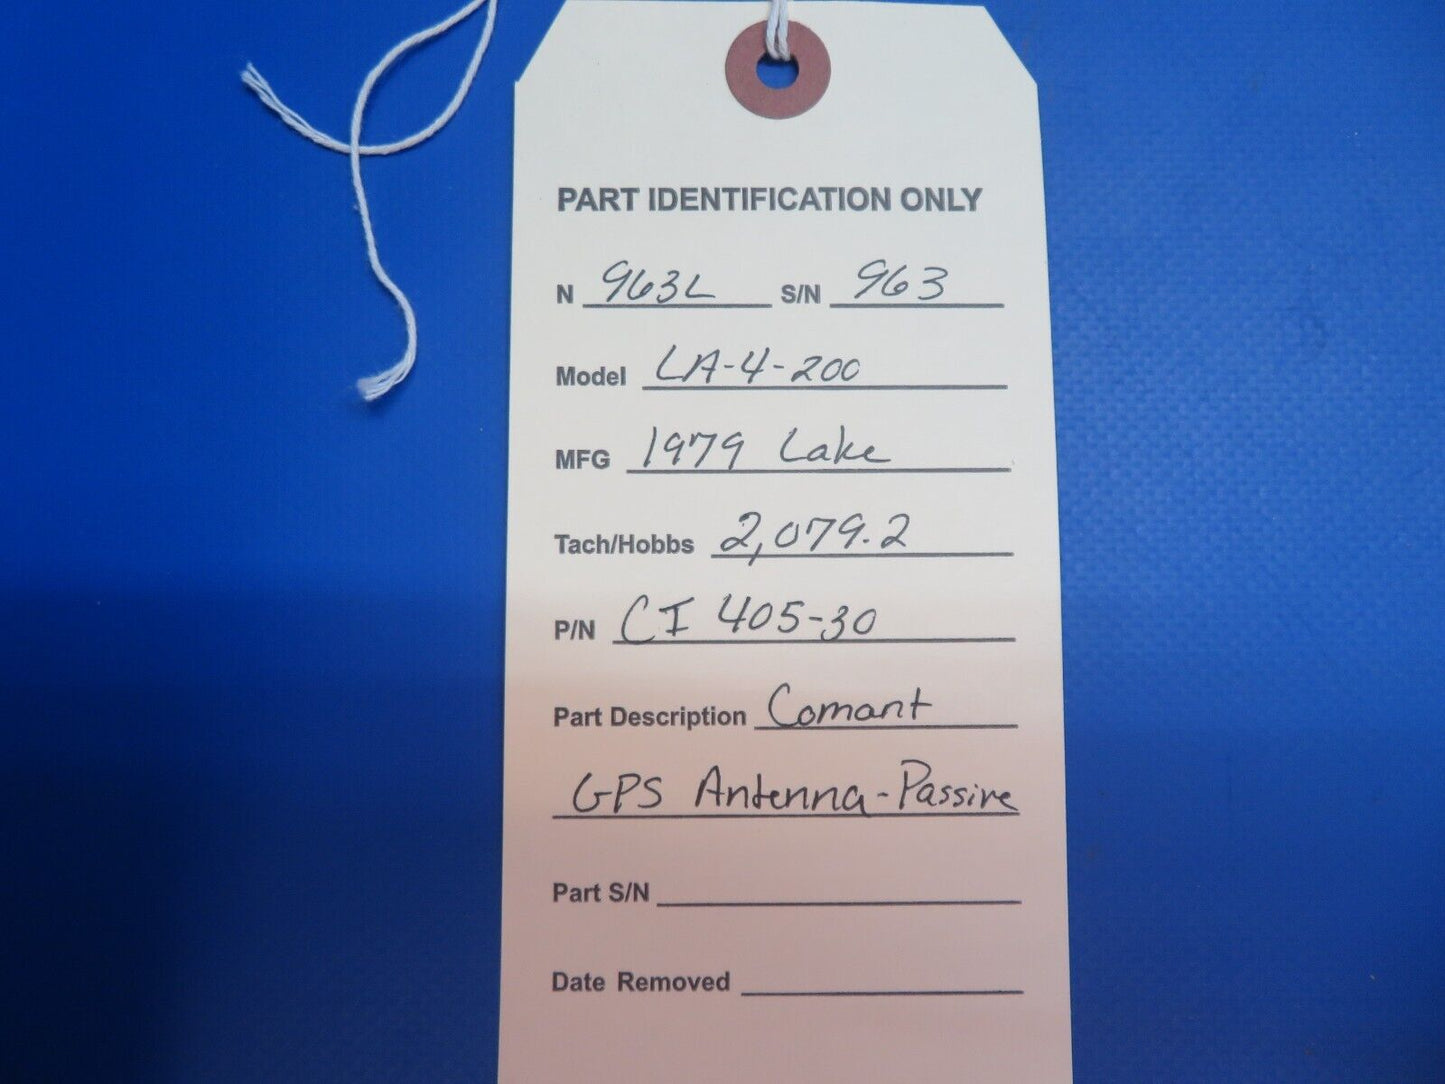 PART IDENTIFICATION ONLY
N 963L S/N 963
Model LA-4-200
MFG 1979 Lake
Tach/Hobbs 2,079.2
P/N CI 405-30
Part Description Comant
GPS Antenna-Passive
Part S/N
Date Removed